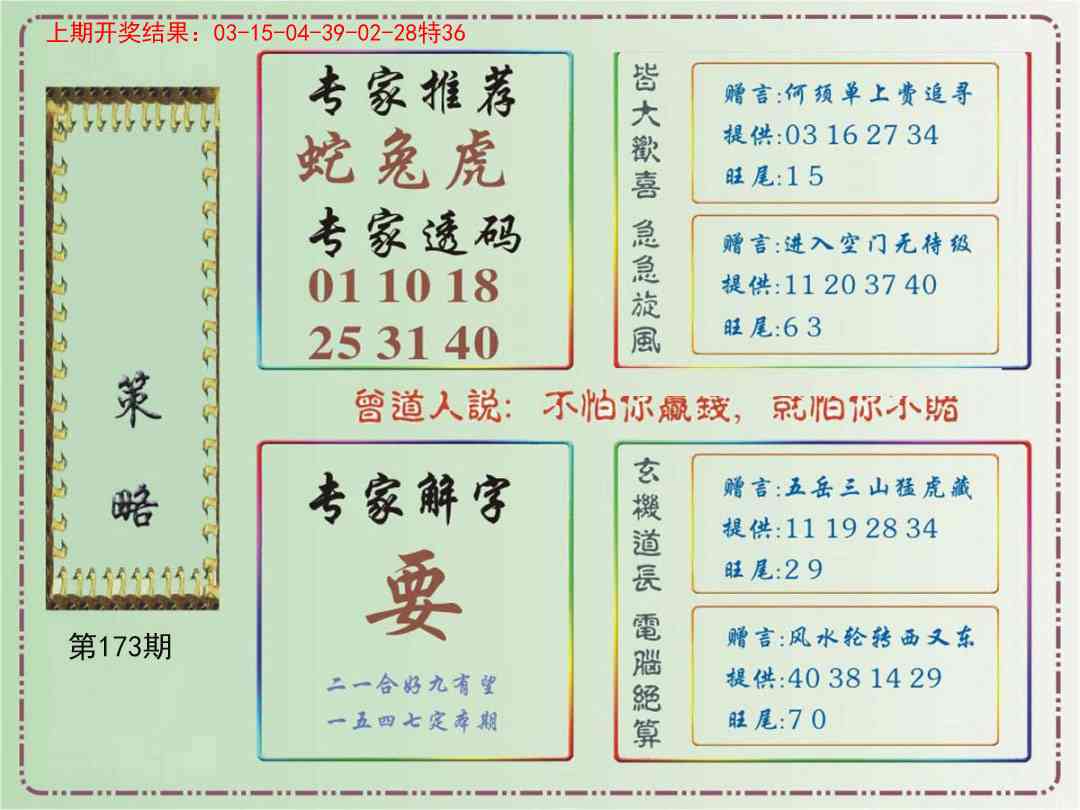 上期开奖结果：03-15-04-39-02-28特36
策略
第173期
专家推荐
蛇兔虎
专家透码
01 10 18
25 31 40
皆大歡喜
赠言:何须单上费追寻
提供:03 16 27 34
旺尾:1 5
急急旋風
赠言:进入空门无待级
提供:11 20 37 40
旺尾:6 3
曾道人説：不怕你贏錢，就怕你不賭
专家解字
要
二一合好九有望
一五四七定本期
玄機道長
赠言:五岳三山猛虎藏
提供:11 19 28 34
旺尾:2 9
電腦絕算
赠言:风水轮转西又东
提供:40 38 14 29
旺尾:7 0